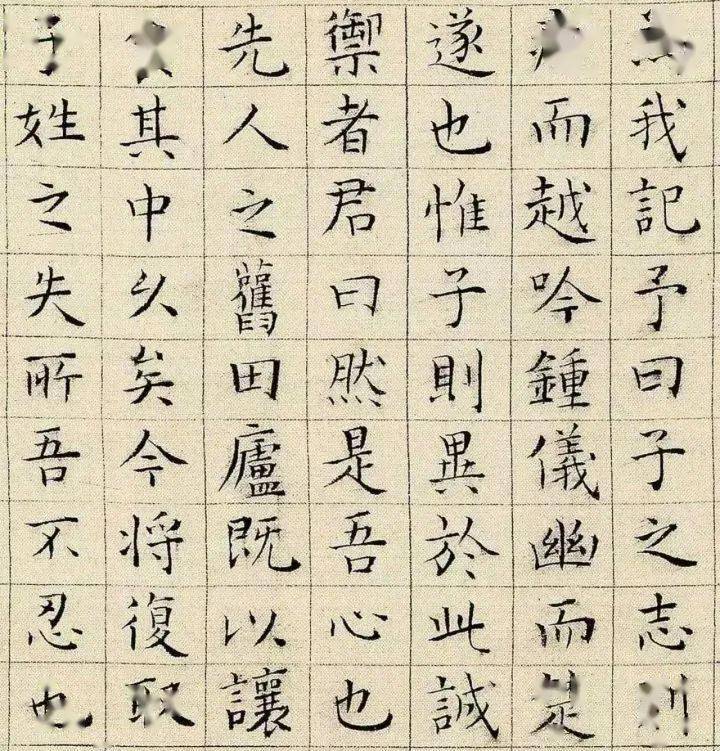 我記予曰子之志
而越吟鍾儀幽而
遂也惟子則異於此誠
禦者君曰然是吾心也
先人之舊田廬既以讓
其中久矣今将復取
姓之失所吾不忍也